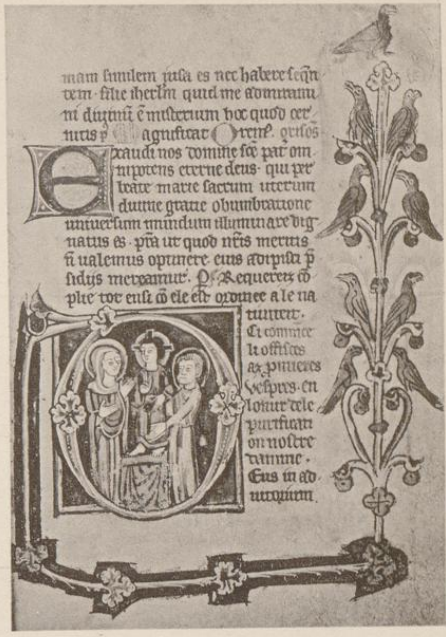 mam similem uisa es nec habere sequen
tem. filie iherlm quid me admirami
ni diuinum e misterium hoc quod cer
nitis Magnificat Oreins. orisos
Exaudi nos domine sce pat om
nipotens eterne deus. qui per
beate marie sacrum uterum
diuine gratie obumbratione
uniuersum mundum illuminare dig
natus es. ut quod nris meritis
n ualemus optinere eius adipisci p
sidiis mereamur. Requerez co
plie tot ensi co ele est ordinee a le na
tiuiteit.
Ci comince
li offices
as pmieres
vespres en
lonur dele
purificati
on nostre
damme.
Eus in ad
iutorium